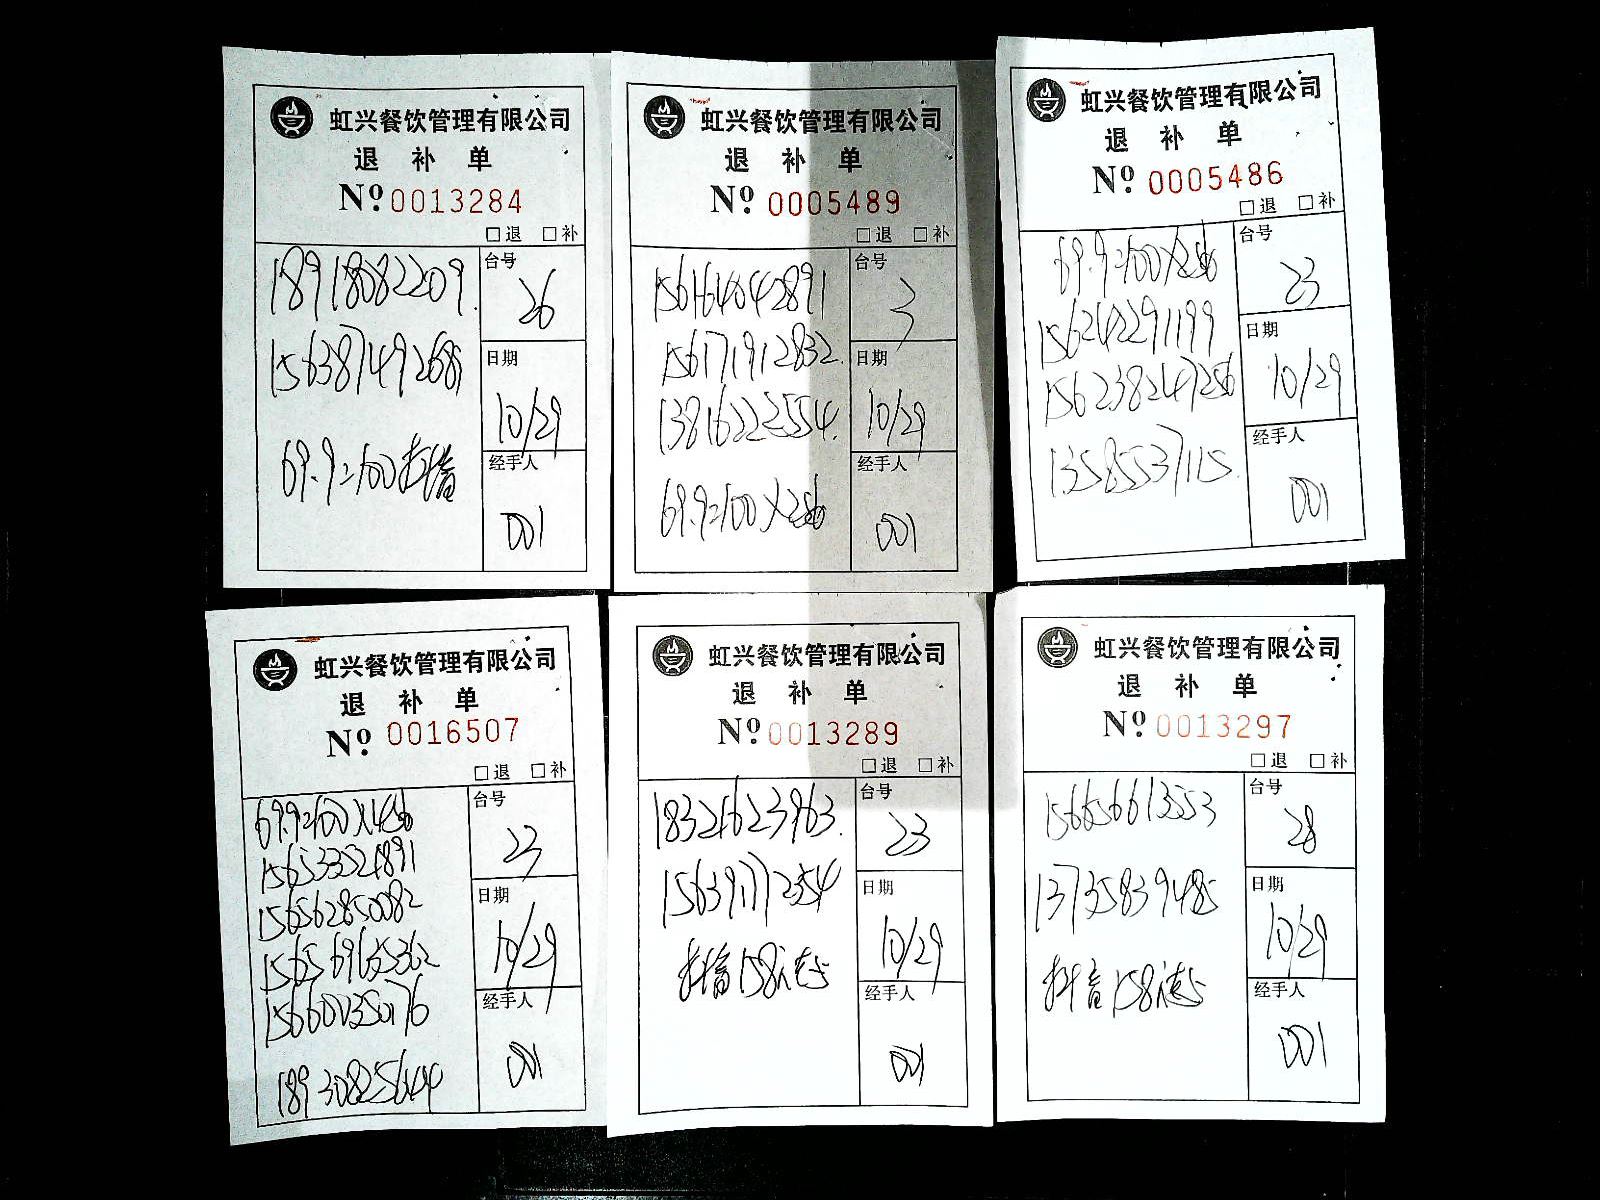 虹兴餐饮管理有限公司
退 补 单
Nº 0013284
□退 □补
18918082209
156387149268
69.9=100抖音
台号
26
日期
10/29
经手人
001
虹兴餐饮管理有限公司
退 补 单
Nº 0005489
□退 □补
156164042891
156171912832
13816222554
69.9=100X2份
台号
3
日期
10/29
经手人
001
虹兴餐饮管理有限公司
退 补 单
Nº 0005486
□退 □补
69.9=100X2份
156242291199
13585537115
台号
23
日期
10/29
经手人
001
虹兴餐饮管理有限公司
退 补 单
Nº 0016507
□退 □补
69.9=100X4份
156533521891
156562850082
156569655362
156600350176
18930825644
台号
23
日期
10/29
经手人
001
虹兴餐饮管理有限公司
退 补 单
Nº 0013289
□退 □补
18321623963
156391772354
抖音158
台号
23
日期
10/29
经手人
001
虹兴餐饮管理有限公司
退 补 单
Nº 0013297
□退 □补
156656613553
13735839485
抖音158
台号
28
日期
10/29
经手人
001